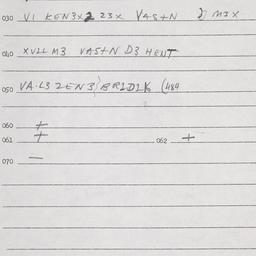 030 V1 KEN3X2 23X VAS+N 2) M3X
040 XVLL M3 VAS+N D3 HENT
050 VA-L3 2EN3) BR1D1K (484
060 +
061 + 062 +
070 —